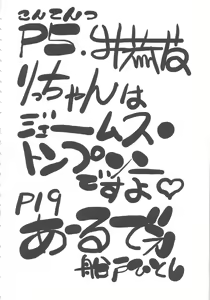 こんてんつ
P5.
りっちゃんは
ジェームス・
トンプソン
ですよ♡
P19
あ・る・で
船戸ひとし